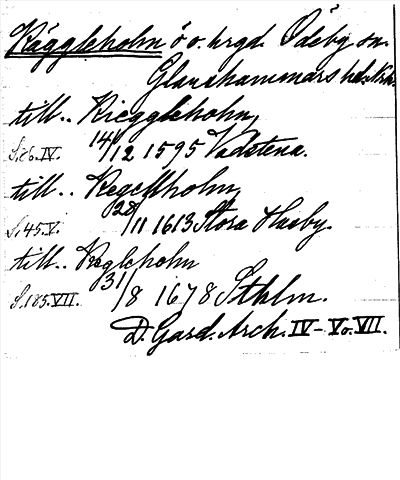 Käggleholm ö o. hrgd. Ödeby sn.
Glanshammars hd. Nrk.
till.. Kieggleholm,
S.86.IV. 14/12 1595 Vadstena.
till.. Kegellholm,
S.45.V. 28/11 1613 Stora Husby.
till.. Kegleholm
S.185.VII. 31/8 1678 Sthlm.
D. Gard. Arch. IV-V o. VII.